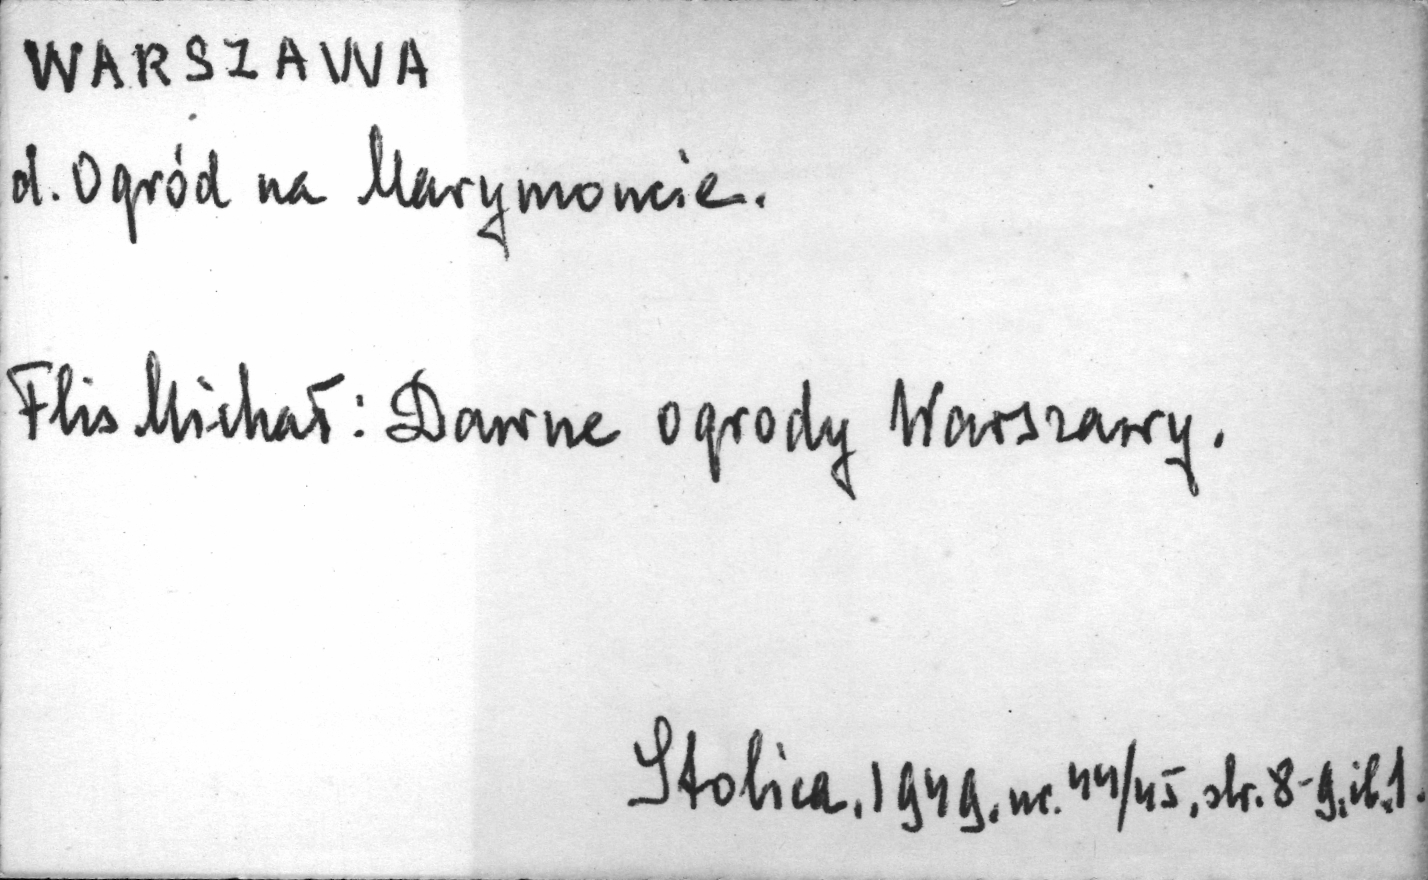 WARSZAWA
d. Ogród na Marymoncie.
Flis Michał: Dawne ogrody Warszawy.
Stolica. 1949. nr. 44/45, str. 8-9, il. 1.